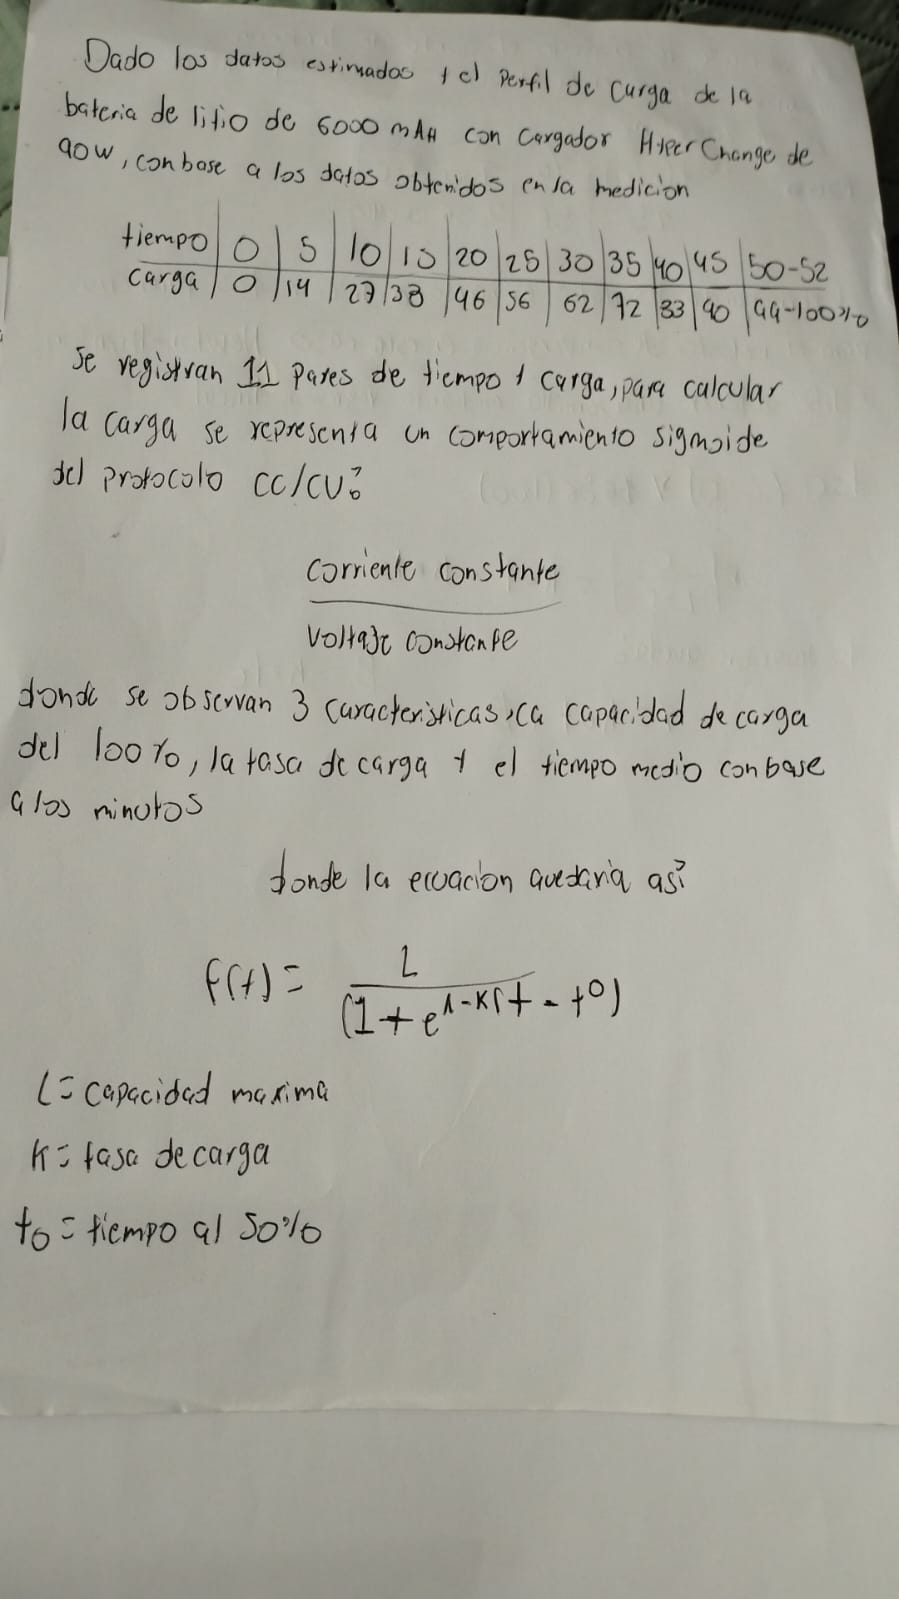 Dado los datos estimados y el Perfil de Carga de la
bateria de litio de 6000 mAH con Cargador HyperCharge de
90W, con base a los datos obtenidos en la medicion
tiempo | 0 | 5 | 10 | 15 | 20 | 25 | 30 | 35 | 40 | 45 | 50-52
carga | 0 | 14 | 27 | 38 | 46 | 56 | 62 | 72 | 83 | 90 | 99-100%
se registran 11 Pares de tiempo y carga, para calcular
la carga se representa un comportamiento sigmoide
del protocolo CC/CV:
corriente constante
Voltaje constante
donde se observan 3 caracteristicas, la capacidad de carga
del 100%, la tasa de carga y el tiempo medio con base
a los minutos
donde la ecuacion quedaria así:
f(t) = L
(1 + e^-K(t - t0)
L = capacidad maxima
K = tasa de carga
t0 = tiempo al 50%